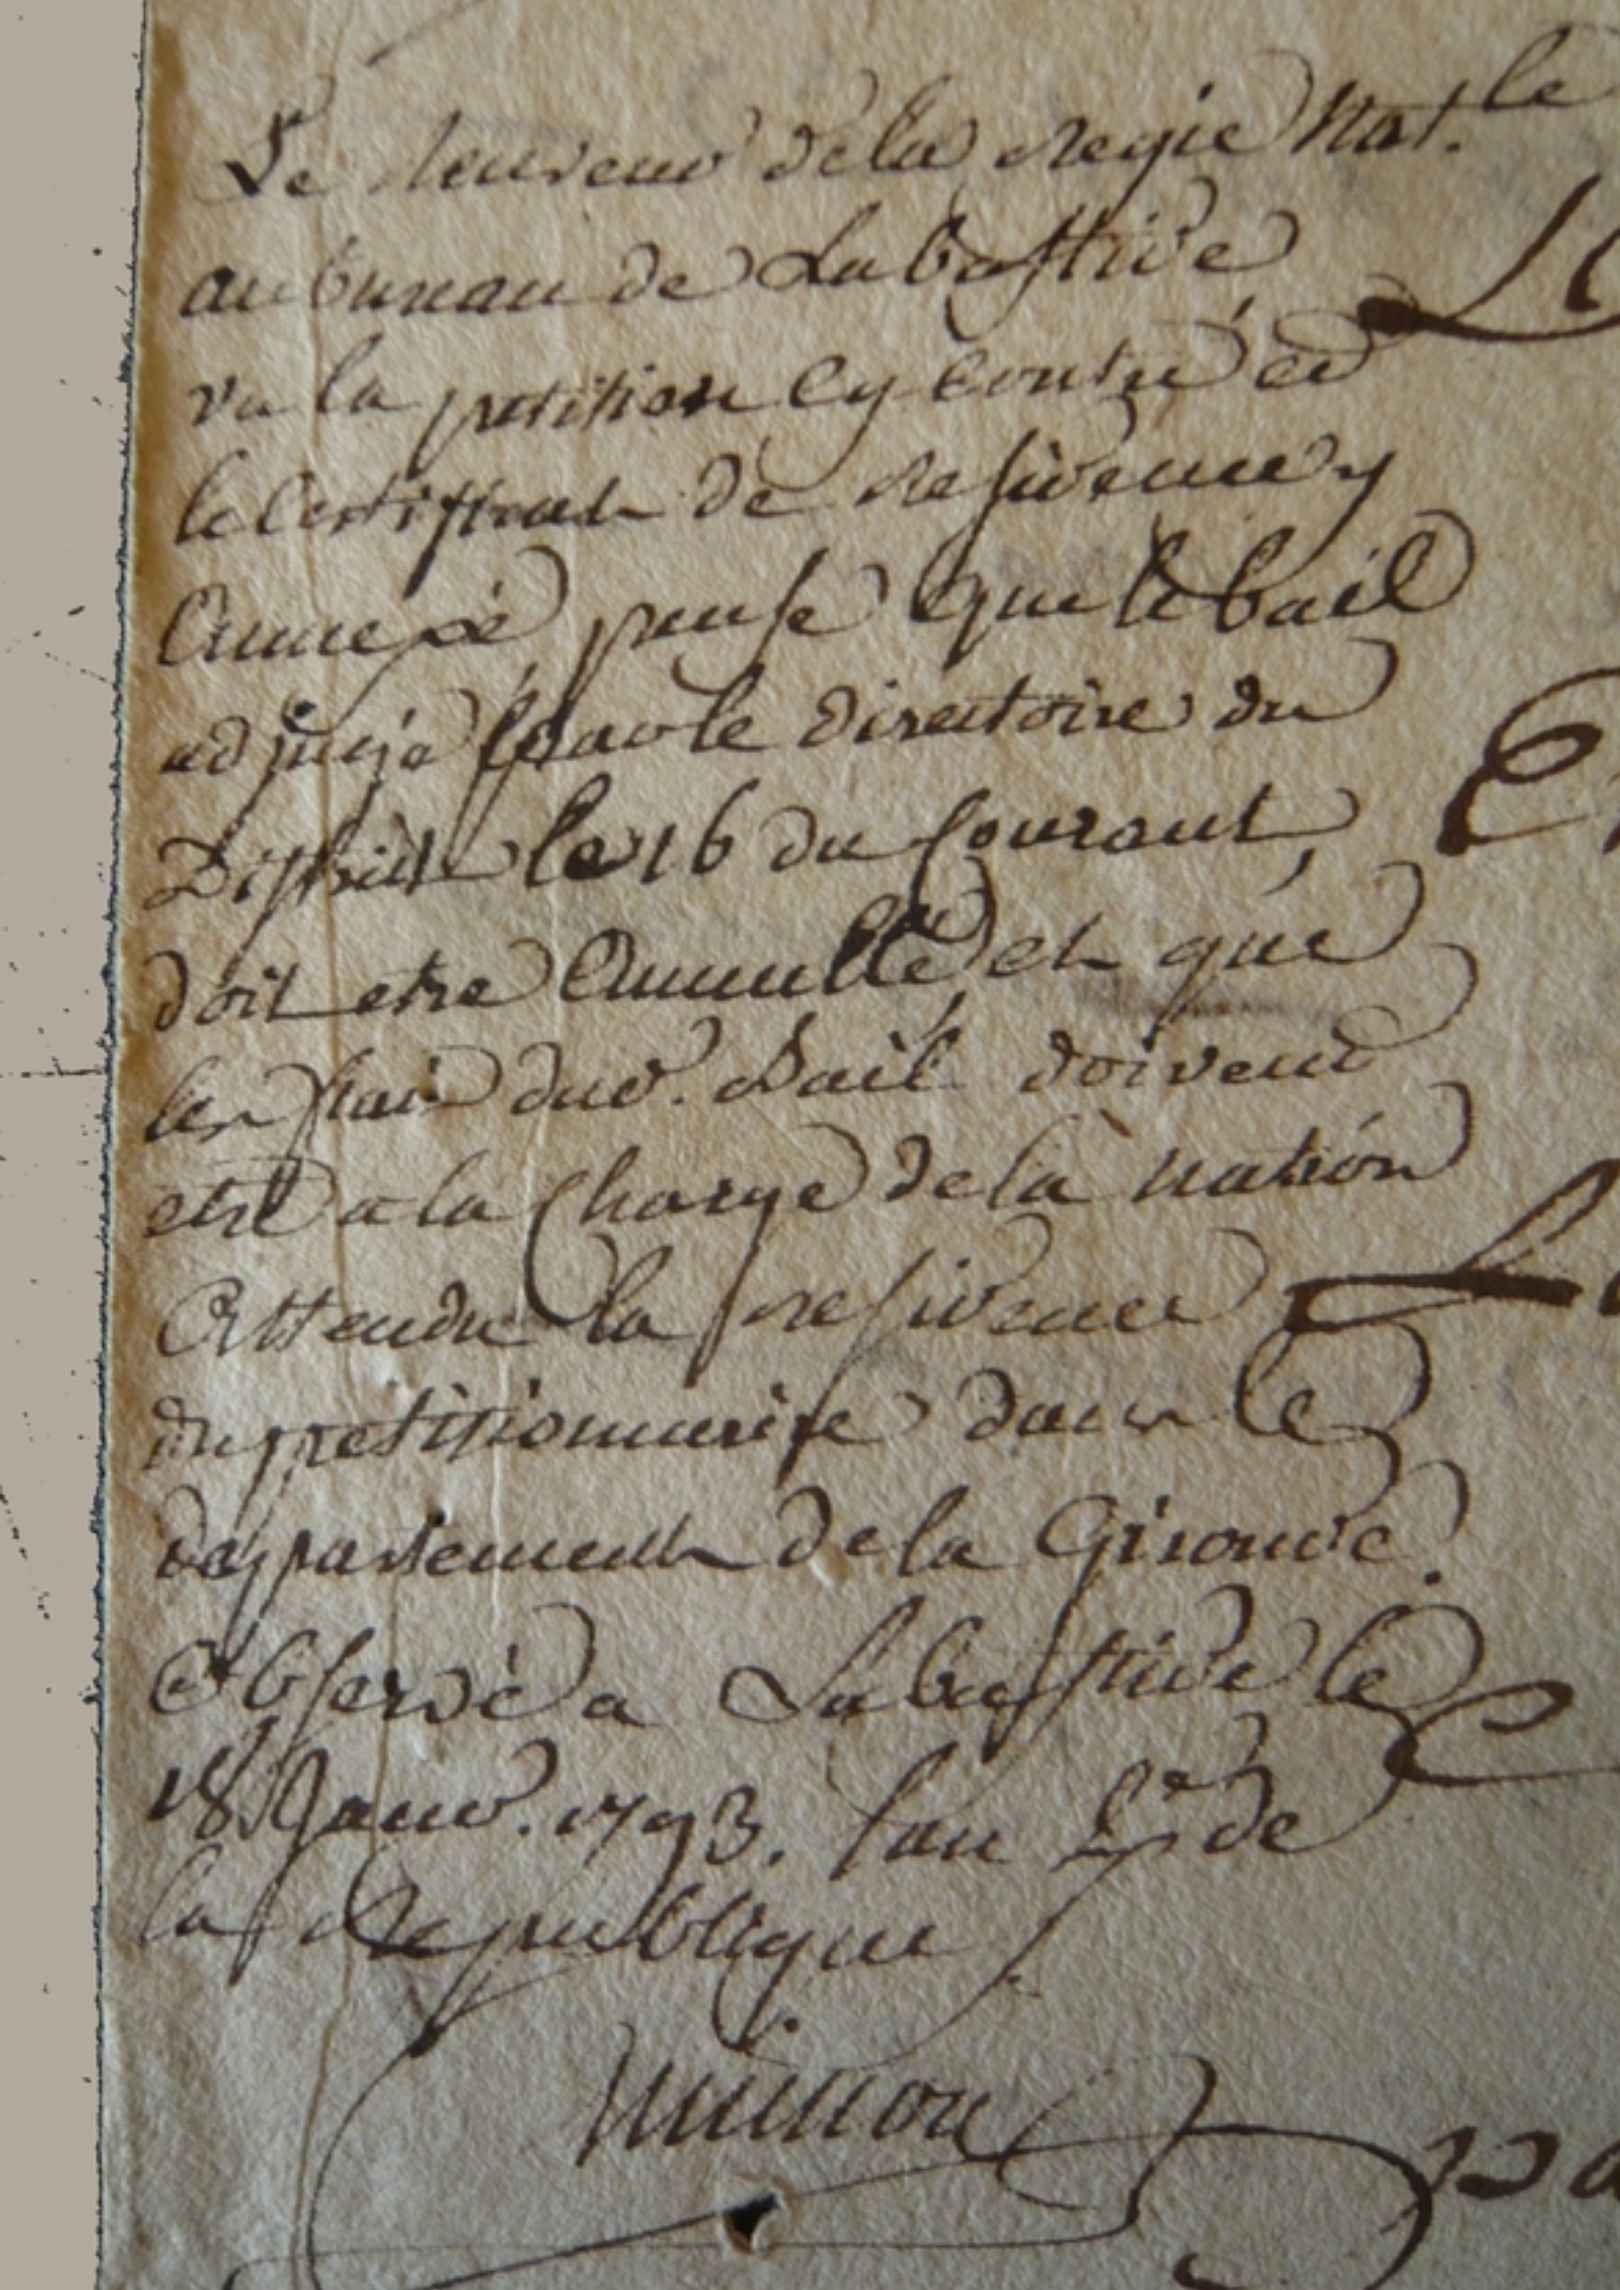 Le receveur de la regie Nat.le
au bureau de Labastide,
vu la petition cy contre et
le certificat de residence y
annexé, pense que le bail
adjugé par le directoire du
District le 16 du courant,
doit etre annullé, et que
les frais dud. Bail doivent
etre a la charge de la nation
attendu la residence
du petitionnaire dans le
departement de la Gironde.
Observé a Labastide le
18 Janv. 1793. l'an 2.e de
la Republique